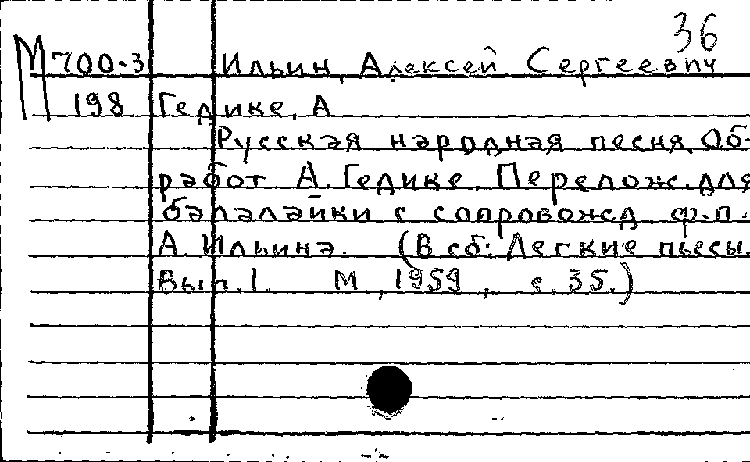 36
М 700-3 Ильин, Алексей Сергеевич
198 Гедике, А
Русская народная песня. Об-
работ А. Гедике. Перелож. для
балалайки с сопровожд ф.-п.
А. Ильина. (В сб: Легкие пьесы.
Вып. 1. М, 1959, с. 35.)